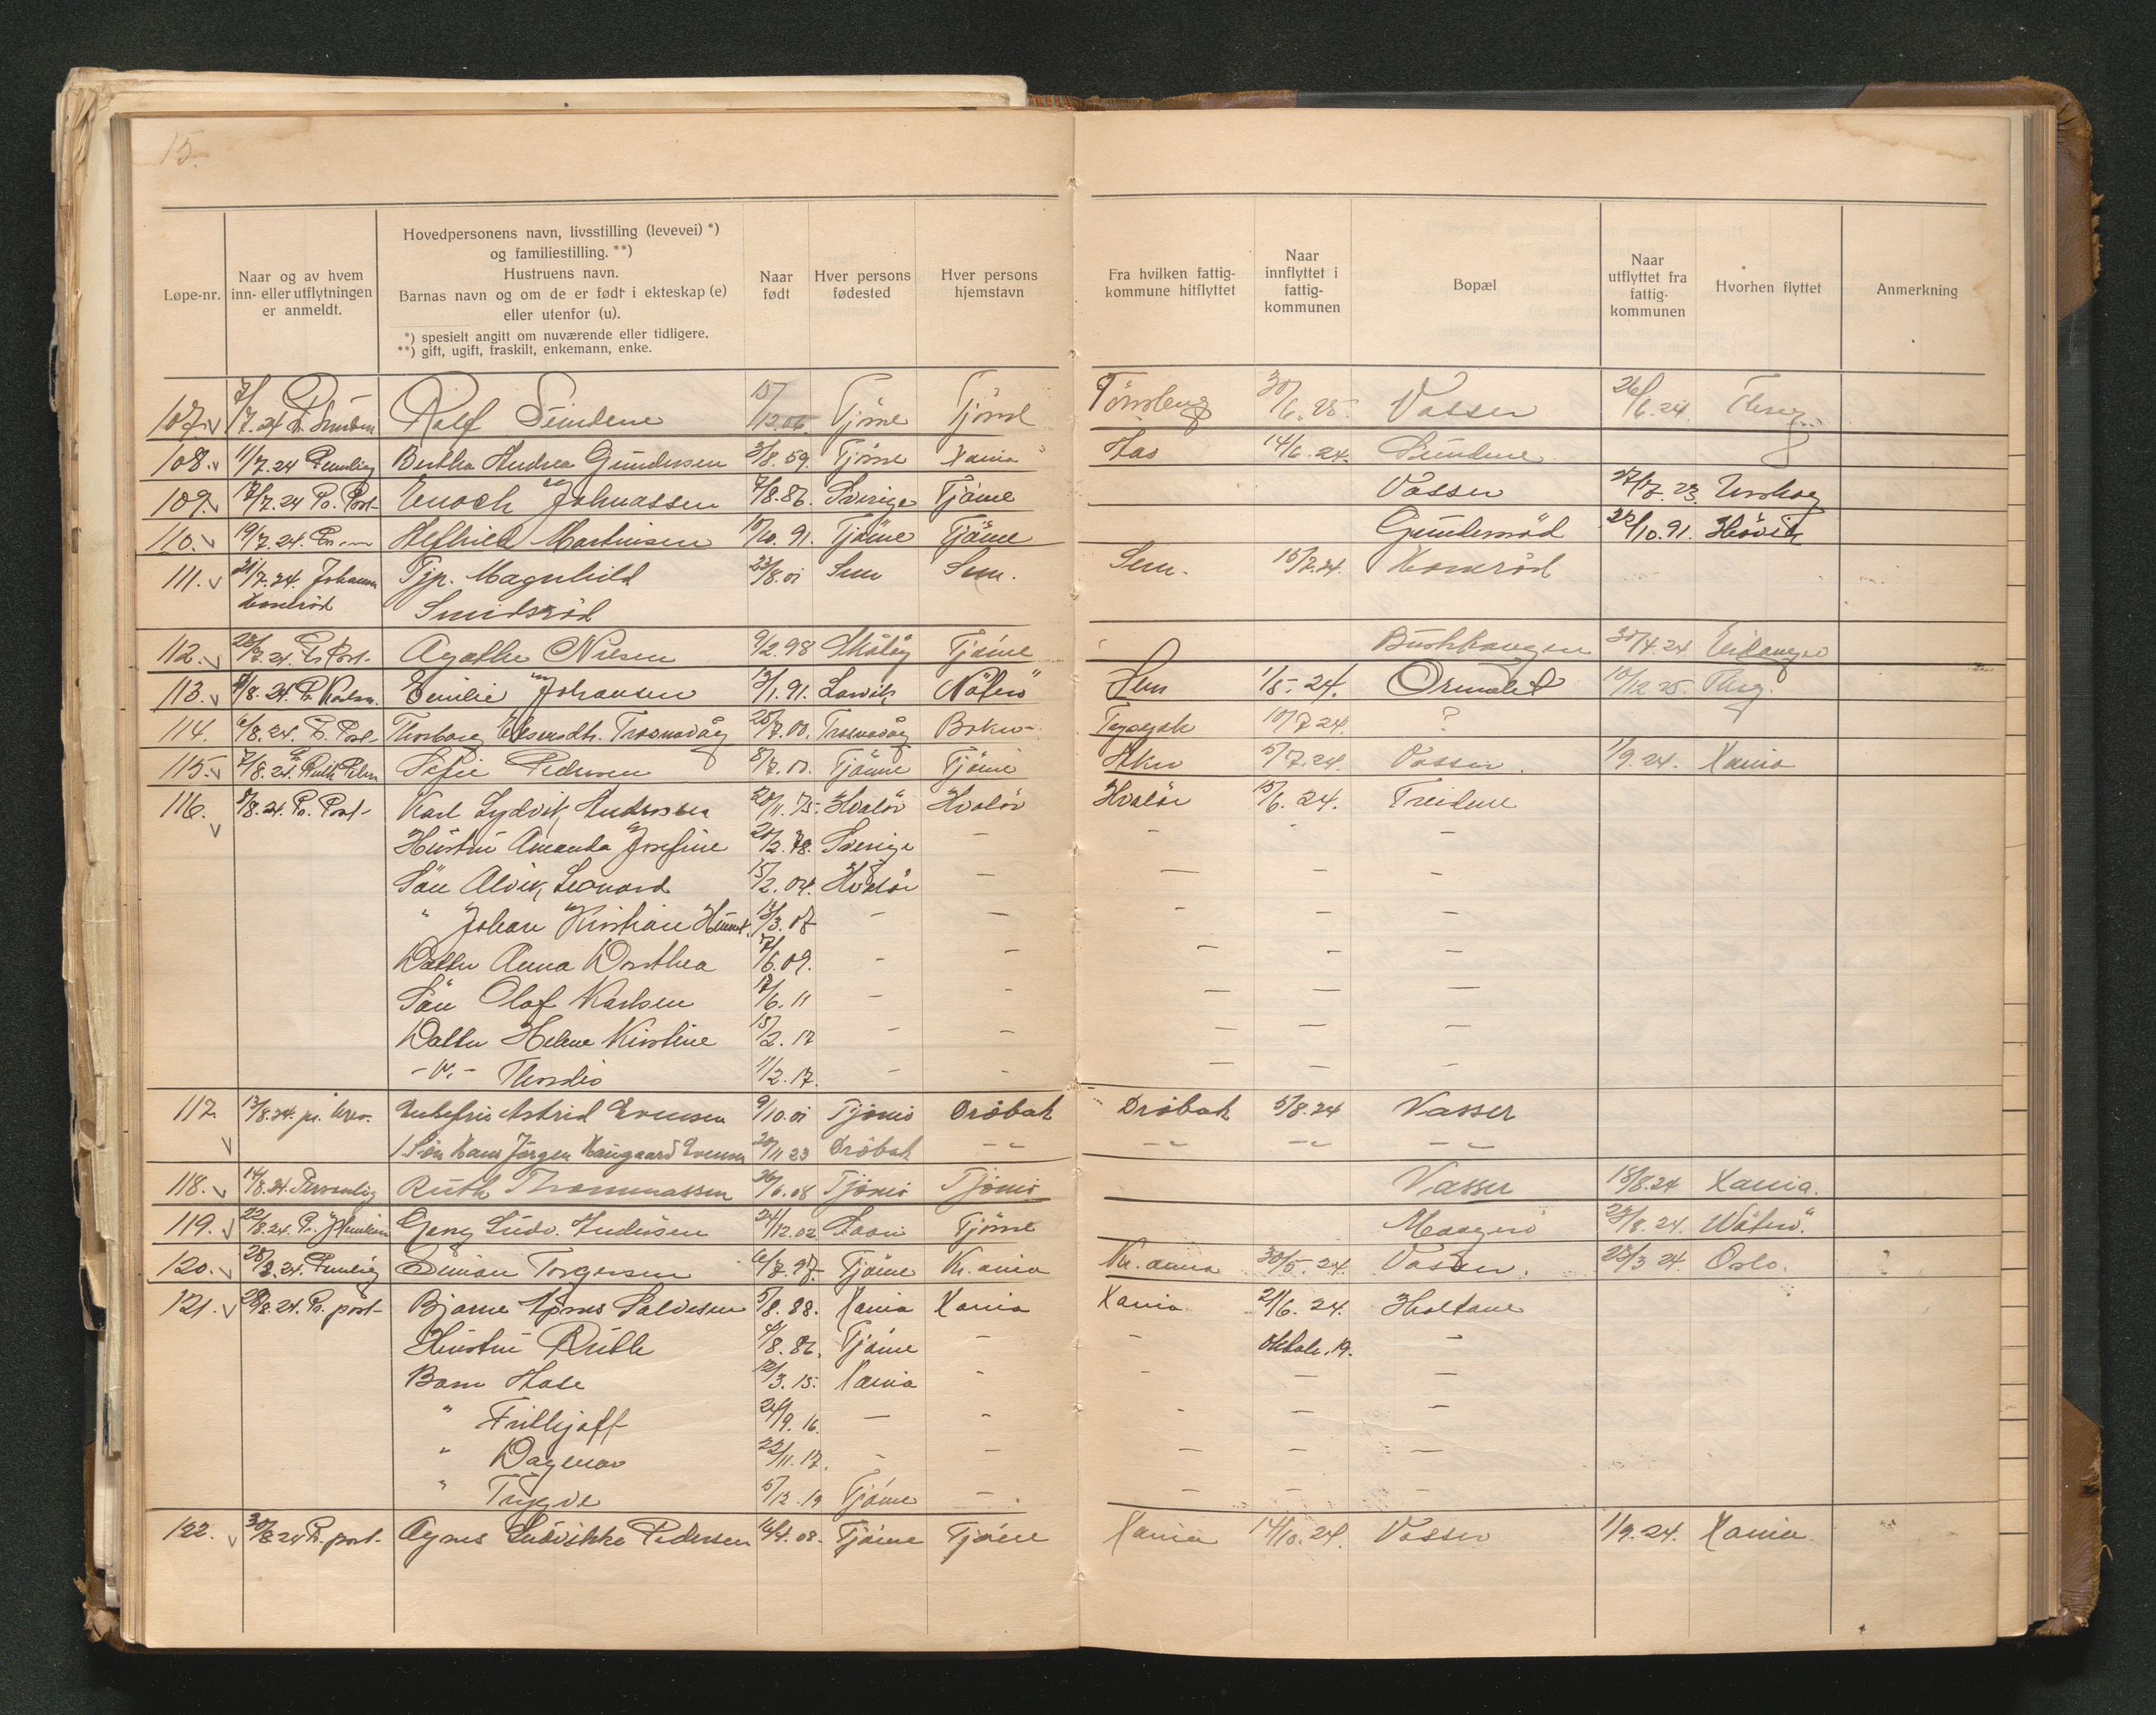 15.
Løpe-nr. | Naar og av hvem inn- eller utflytningen er anmeldt. | Hovedpersonens navn, livsstilling (levevei) *) og familiestilling. **) Hustruens navn. Barnas navn og om de er født i ekteskap (e) eller utenfor (u). *) spesielt angitt om nuværende eller tidligere. **) gift, ugift, fraskilt, enkemann, enke. | Naar født | Hver persons fødested | Hver persons hjemstavn | Fra hvilken fattig-kommune hitflyttet | Naar innflyttet i fattig-kommunen | Bopæl | Naar utflyttet fra fattig-kommunen | Hvorhen flyttet | Anmerkning
107. 7/7.24 Rolf Sundene 15/12.06 Tjöme Tjöme Tönsberg 30/6.25. Vasser 26/6.24 Tbrg.
108. 11/7.24 Bertha Andrea Gundersen 3/8.59. Tjöme Xania Aas 14/6.24. Sundene
109. 17/7.24 Pr. Post- Enoch Johnassen 7/8.86. Sverige Tjöme Vasser
110. 19/7.24. Pr. Martinsen 10/10.91. Tjöme Tjöme Gundersröd 22/10.91. Hövik
111. 21/7.24. Johannes Tjp. Magnhild 23/8.01 Sem Sem. Sem. 15/7.24. Honeröd
Smidsröd
112. 28/7.24. Pr Post- Agathe Nilsen 9/2.98 Tjöme 30/4.24 Eidanger
113. /8.24. Pr. Emilie Johansen 13/1.91. Larvik Nöterö Sem 1/5.24. Ormelet 10/12 25. Tbrg.
114. 6/8.24. Pr. Post- Thorborg 28/7.00. Bokn 10/7 24. ?
115. 7/8.24. Pr Ruth Sofie Pedersen 8/7.01. Tjöme Tjöme Aker 5/7.24. Vasser. 1/9.24. Xania
116. 8/8.24. Pr. Post- Karl Lydvik Andersen 28/11.75. Hvalör Hvalör Hvalör 15/6.24. Treidene
Hustru Amanda Josefine 20/2.78. Sverige – – – –
Sön Alvik Leonard 15/2.04. Hvalör – – – –
" Johan Kristian 13/3.07 – – – – –
Datter Anna Dorthea 7/6.09. – – – – –
Sön Olaf Karlsen 17/6.11 – – – – –
Datter Helene Kirstine 15/2.17 – – – – –
– " – Thordis 11/2.17. – – – – –
117. 13/8.24. pr. brev. Astrid Evensen 9/10.01 Tjömö Dröbak Dröbak 5/8.24 Vasser
1 Sön Hans Jörgen Haugaard Evensen 20/11 23 Dröbak – " – – " – – " – – " –
118. 14/8.24. Personlig Ruth Thommassen 26/6.08 Tjömö Tjömö Vasser 18/8.24 Xania.
119. 22/8.24. Pr. Georg Ludv. Andersen 24/12.02 Tjöme Maagerö 23/8.24.
120. 28/8.24. Torgersen 6/7.97. Tjöme Kr.ania Kr.ania 30/5.24. Vasser. 23/3 24. Oslo.
121. 29/8.24. Pr. post- Bjarne Salvesen 5/8.88. Xania Xania Xania 21/6.24. Holtane
Hustru Ruth 4/8.86. Tjöme – – Oktobr. 19. –
Barn Aase 12/3.15. Xania – – – –
" Frithjoff 29/9.16. – – – – –
" Dagmar 22/11.17. – – – – –
" Trygve 5/12.19 Tjöme – – – –
122. 30/8.24 Pr. post- Agnes Ludvikke Pedersen 16/4.08. Tjöme Tjöme Xania 14/10.24. Vasser 1/9.24. Xania